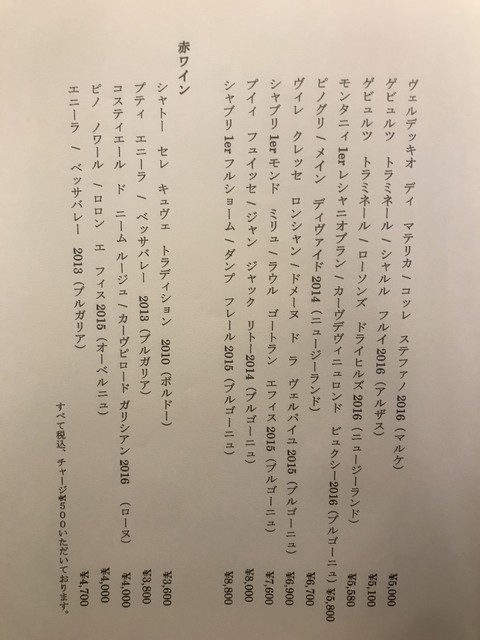 ヴェルデッキオ ディ マテリカ / コッレ ステファノ 2016 (マルケ) ¥5,000
ゲビュルツ トラミネール / シャルル フルイ 2016 (アルザス) ¥5,100
ゲビュルツ トラミネール / ローソンズ ドライヒルズ 2016 (ニュージーランド) ¥5,580
モンタニィ 1er レシャニオブラン / カーヴデヴィニュロンド ビュクシー2016 (ブルゴーニュ) ¥5,800
ピノグリ / メイン ディヴァイド 2014 (ニュージーランド) ¥6,700
ヴィレ クレッセ ロンシャン / ドメーヌ ド ラ ヴェルパイユ 2015 (ブルゴーニュ) ¥6,900
シャブリ 1er モンド ミリュ / ラウル ゴートラン エフィス 2015 (ブルゴーニュ) ¥7,600
プイィ フュイッセ / ジャン ジャック リトー2014 (ブルゴーニュ) ¥8,000
シャブリ 1er フルショーム / ダンプ フレール 2015 (ブルゴーニュ) ¥8,800
赤ワイン
シャトー セレ キュヴェ トラディション 2010 (ボルドー) ¥3,600
プティ エニーラ / ベッサバレー 2013 (ブルガリア) ¥3,800
コスティエール ド ニーム ルージュ / カーヴピロード ガリシアン 2016 (ローヌ) ¥4,000
ピノ ノワール / ロロン エ フィス 2015 (オーベルニュ) ¥4,000
エニーラ / ベッサバレー 2013 (ブルガリア) ¥4,700
すべて税込、チャージ¥500いただいております。